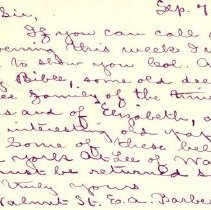 Sep. 4
Sir,
If you can call
evening this week I
to show you Col. A
Bible, some old dee
family of the time
s and of Elizabeth,
interesting old pap
Some of these bel
York & Lee of Wa
must be returned s
Truly yours
Walnut St. E.A. Barbe